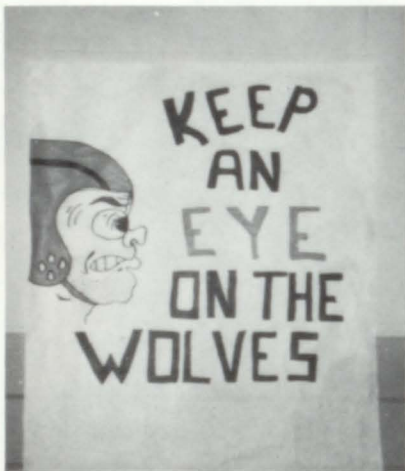 KEEP
AN
EYE
ON THE
WOLVES